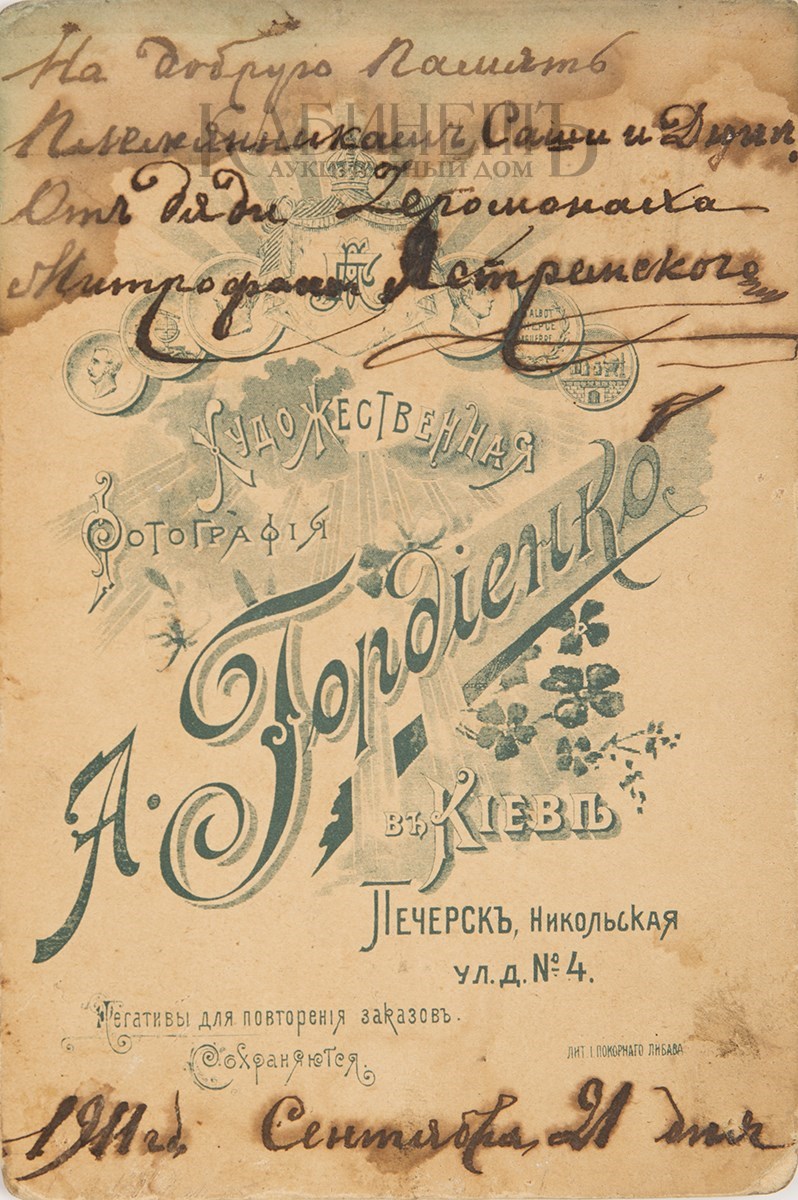 На добрую Память
КАБИНЕТЪ
Племянникамъ Саши и Дуни,
АУКЦИОННЫЙ ДОМ
Отъ дяди Iеромонаха
Митрофана Ястремского
Художественная
Фотографія
А. Гордіенко.
въ Кіевѣ
Печерскъ, Никольская
ул. д. № 4.
Негативы для повторенія заказовъ.
Сохраняются.
ЛИТ. I ПОКОРНАГО ЛИБАВА
1911 гд. Сентября, 21 дня